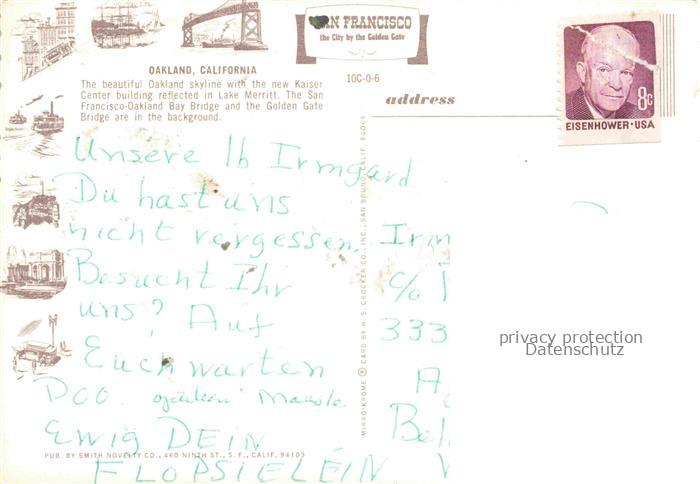 SAN FRANCISCO
the City by the Golden Gate
OAKLAND, CALIFORNIA
The beautiful Oakland skyline with the new Kaiser
Center building reflected in Lake Merritt. The San
Francisco-Oakland Bay Bridge and the Golden Gate
Bridge are in the background.
10C-0-6
address
8c
EISENHOWER·USA
Unsere lb Irmgard
Du hast uns
nicht vergessen.
Besucht Ihr
uns? Auf
Euch warten
Doo.
EWIG DEIN
FLOPSIELEIN
PUB. BY SMITH NOVELTY CO., 460 NINTH ST., S. F., CALIF. 94103
MIRRO-KROME ® CARD BY H. S. CROCKER CO., INC., SAN BRUNO, CALIF. 94066
Irm
c/o
333
privacy protection
Datenschutz